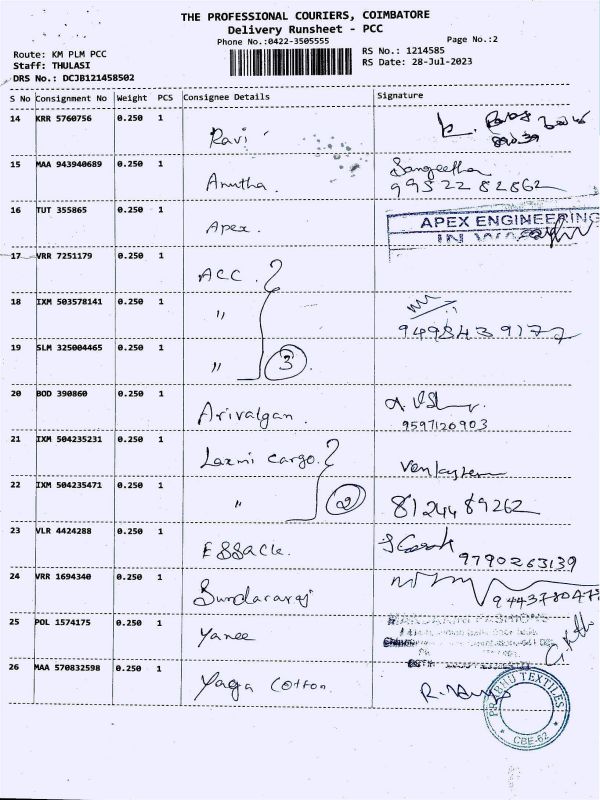 THE PROFESSIONAL COURIERS, COIMBATORE
Delivery Runsheet - PCC
Phone No.:0422-3505555
Page No.:2
Route: KM PLM PCC
RS No.: 1214585
Staff: THULASI
RS Date: 28-Jul-2023
DRS No.: DCJB121458502
S No Consignment No Weight PCS Consignee Details Signature
14 KRR 5760756 0.250 1 Ravi
15 MAA 943940689 0.250 1 Amutha. Sangeetha
9952282862
16 TUT 355865 0.250 1 Apex. APEX ENGINEERING
IN
17 VRR 7251179 0.250 1 ACC.
18 IXM 503578141 0.250 1 "
9498439177
19 SLM 325004465 0.250 1 " 3
20 BOD 390860 0.250 1 Arivalgan.
9597120903
21 IXM 504235231 0.250 1 Laxmi cargo.
22 IXM 504235471 0.250 1 " 2 8124489262
23 VLR 4424288 0.250 1 Essacle. 9790263139
24 VRR 1694340 0.250 1 Sundararaj
25 POL 1574175 0.250 1 Yanee
26 MAA 570832598 0.250 1 Yaga Cotton.
PRABHU TEXTILES
CBE-62